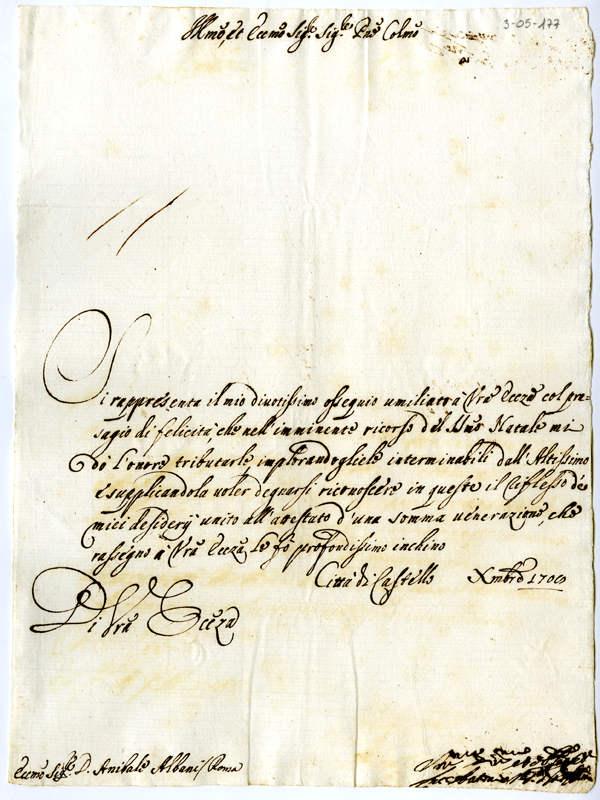 3-05-177
Illmo, et Ecc̃mo Sig.re Sig.re Pñe Colmo
Si rappresenta il mio divotissimo ossequio umiliato a Vrã Eccza col pre-
sagio di felicità, che nell'imminente ricorso del SSmo Natale mi
dò l'onore tributarle implorandogliele interminabili dall'Altissimo
e supplicandola voler degnarsi riconoscere in queste il riflesso de
miei desiderij unito all'attestato d'una somma venerazione, che
rassegno a Vrã Eccza, e fò profondissimo inchino
Città di Castello Xmbre 1700
Di Vrã Eccza
Eccmo Sig.re D. Anibale Albani / Roma